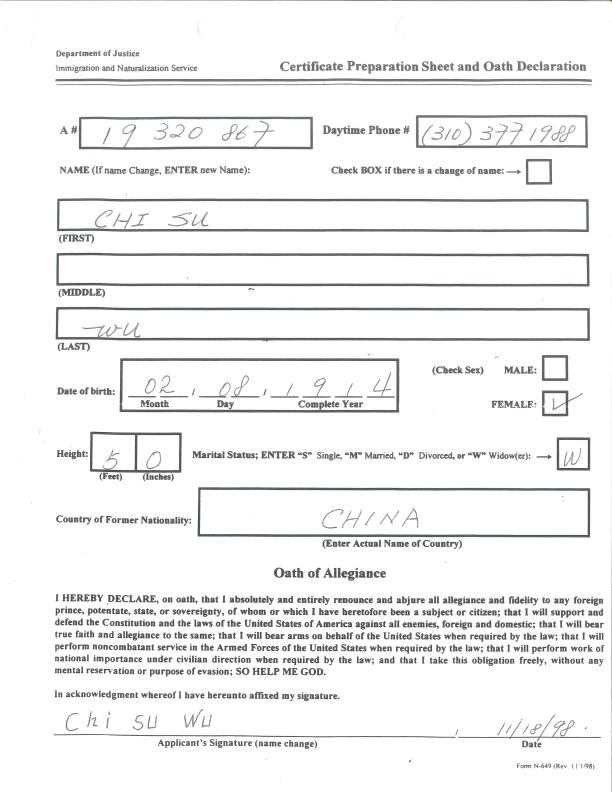 Department of Justice
Immigration and Naturalization Service
Certificate Preparation Sheet and Oath Declaration
A # 19 320 867 Daytime Phone # (310) 377 1988
NAME (If name Change, ENTER new Name): Check BOX if there is a change of name:
CHI SU
(FIRST)
(MIDDLE)
WU
(LAST)
(Check Sex) MALE:
Date of birth: 02, 08, 1914
Month Day Complete Year
FEMALE: ✓
Height: 5 0 Marital Status; ENTER "S" Single, "M" Married, "D" Divorced, or "W" Widow(er): W
(Feet) (Inches)
Country of Former Nationality: CHINA
(Enter Actual Name of Country)
Oath of Allegiance
I HEREBY DECLARE, on oath, that I absolutely and entirely renounce and abjure all allegiance and fidelity to any foreign
prince, potentate, state, or sovereignty, of whom or which I have heretofore been a subject or citizen; that I will support and
defend the Constitution and the laws of the United States of America against all enemies, foreign and domestic; that I will bear
true faith and allegiance to the same; that I will bear arms on behalf of the United States when required by the law; that I will
perform noncombatant service in the Armed Forces of the United States when required by the law; that I will perform work of
national importance under civilian direction when required by the law; and that I take this obligation freely, without any
mental reservation or purpose of evasion; SO HELP ME GOD.
In acknowledgment whereof I have hereunto affixed my signature.
Chi SU WU , 11/18/98.
Applicant's Signature (name change) Date
Form N-649 (Rev. 11/1/98)